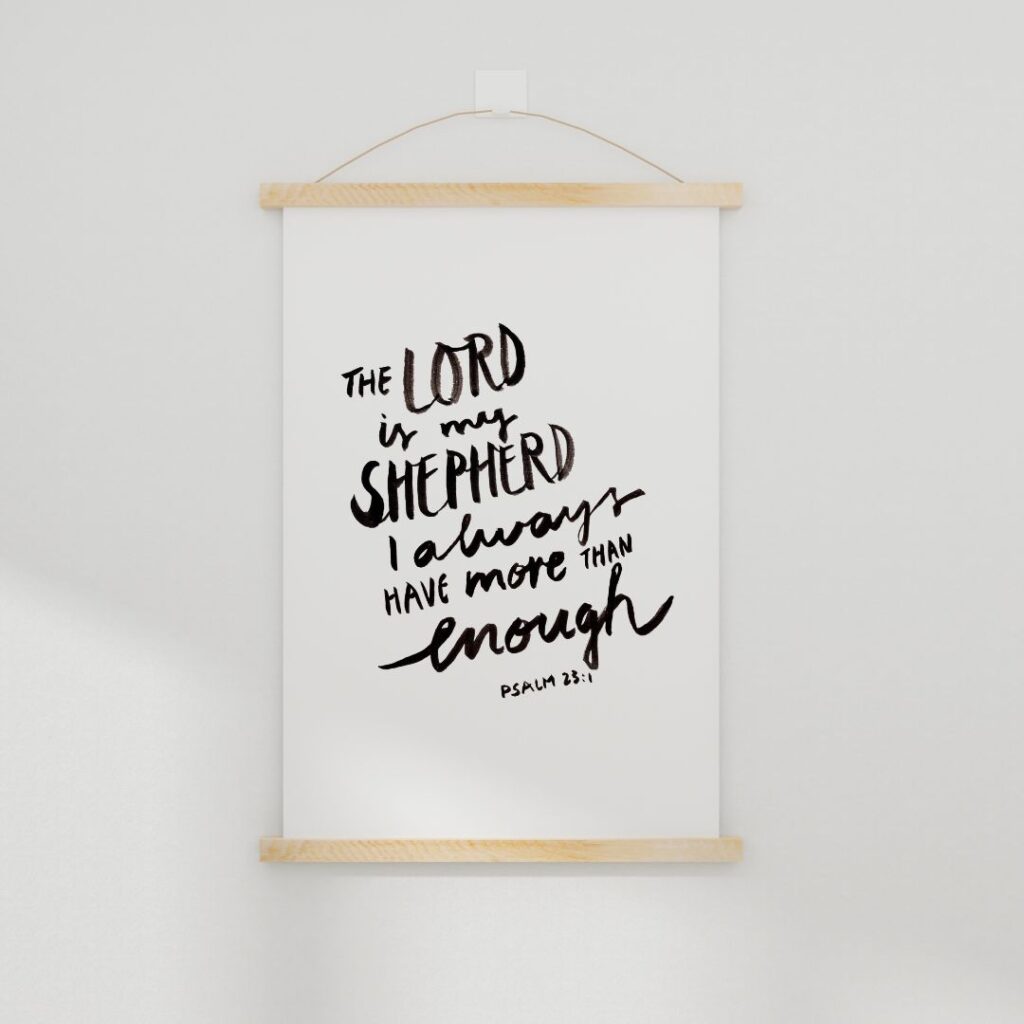 THE LORD
is my
SHEPHERD
I always
HAVE more THAN
enough
PSALM 23:1